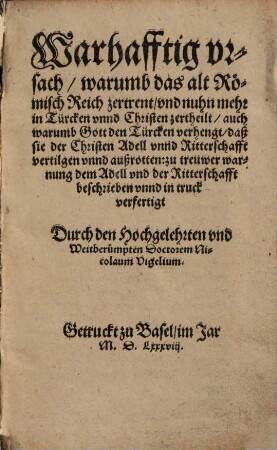 Warhafftig vr-
sach / warumb das alt Rö-
misch Reich zertrent / vnd nuhn mehr
in Türcken vnnd Christen zertheilt / auch
warumb Gott den Türcken verhengt / daß
sie der Christen Adell vnnd Ritterschafft
vertilgen vnnd außrotten: zu treuwer war-
nung dem Adell vnd der Ritterschafft
beschrieben vnnd in truck
verfertigt
Durch den Hochgelehrten vnd
Weitberümpten Doctorem Ni-
colaum Vigelium.
Getruckt zu Basel / im Jar
M. D. Lxxxviij.